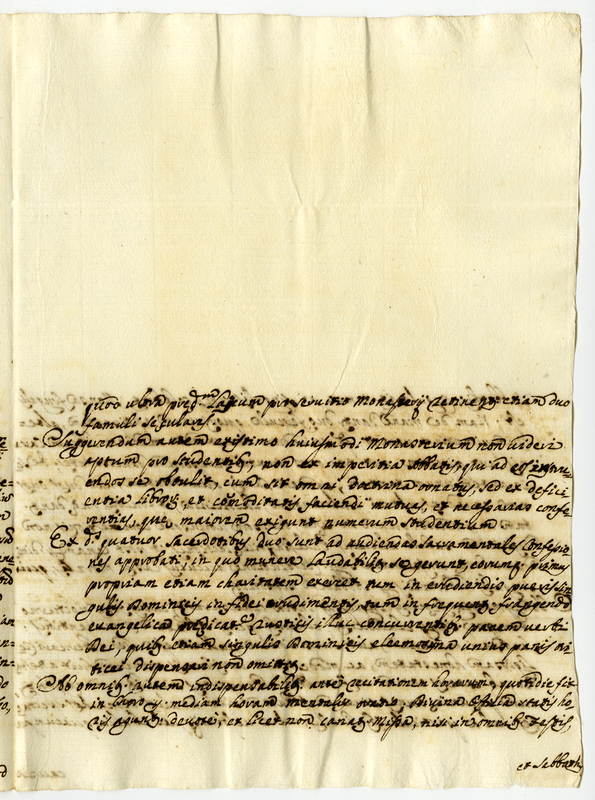 quo ultra pred.m Laicum pro servitio Monasterij retinent etiam duo
famuli seculares.
Suggerendum autem existimo huiusmodi Monasterium non videri
aptum pro studentibus, non ex imperitia Abbatis, qui ad eos
endos se obtulit, cum sit omni doctrina ornatus, sed ex defici
entia librorum, et comoditatis faciendi mutuas, et necessarias confe
rentias, que maiorem exigunt numerum studentium.
Ex d.is quatuor sacerdotibus duo sunt ad audiendas sacramentales Confessio
nes approbati; in quo munere laudabiliter se gerunt, eorumque primus
propriam etiam charitatem exercet tum in erudiendis pueris sin
gulis Dominicis in fidei rudimentis, tum in frequenter frangendo
evangelica rusticis illuc concurrentibus panem verbi
Dei, quibus etiam singulis Dominicis eleemosina unius panis tri
ticei dispensari non omittitur.
Ab omnibus autem indispensabiliter ante recitationem horarum, quotidie fit
in Choro mediam horam mentalis oratio, Divina Officia statis ho
ris agunt devote, et licet non canatur Missa, nisi in omnibus Festis,
et Sabbathis